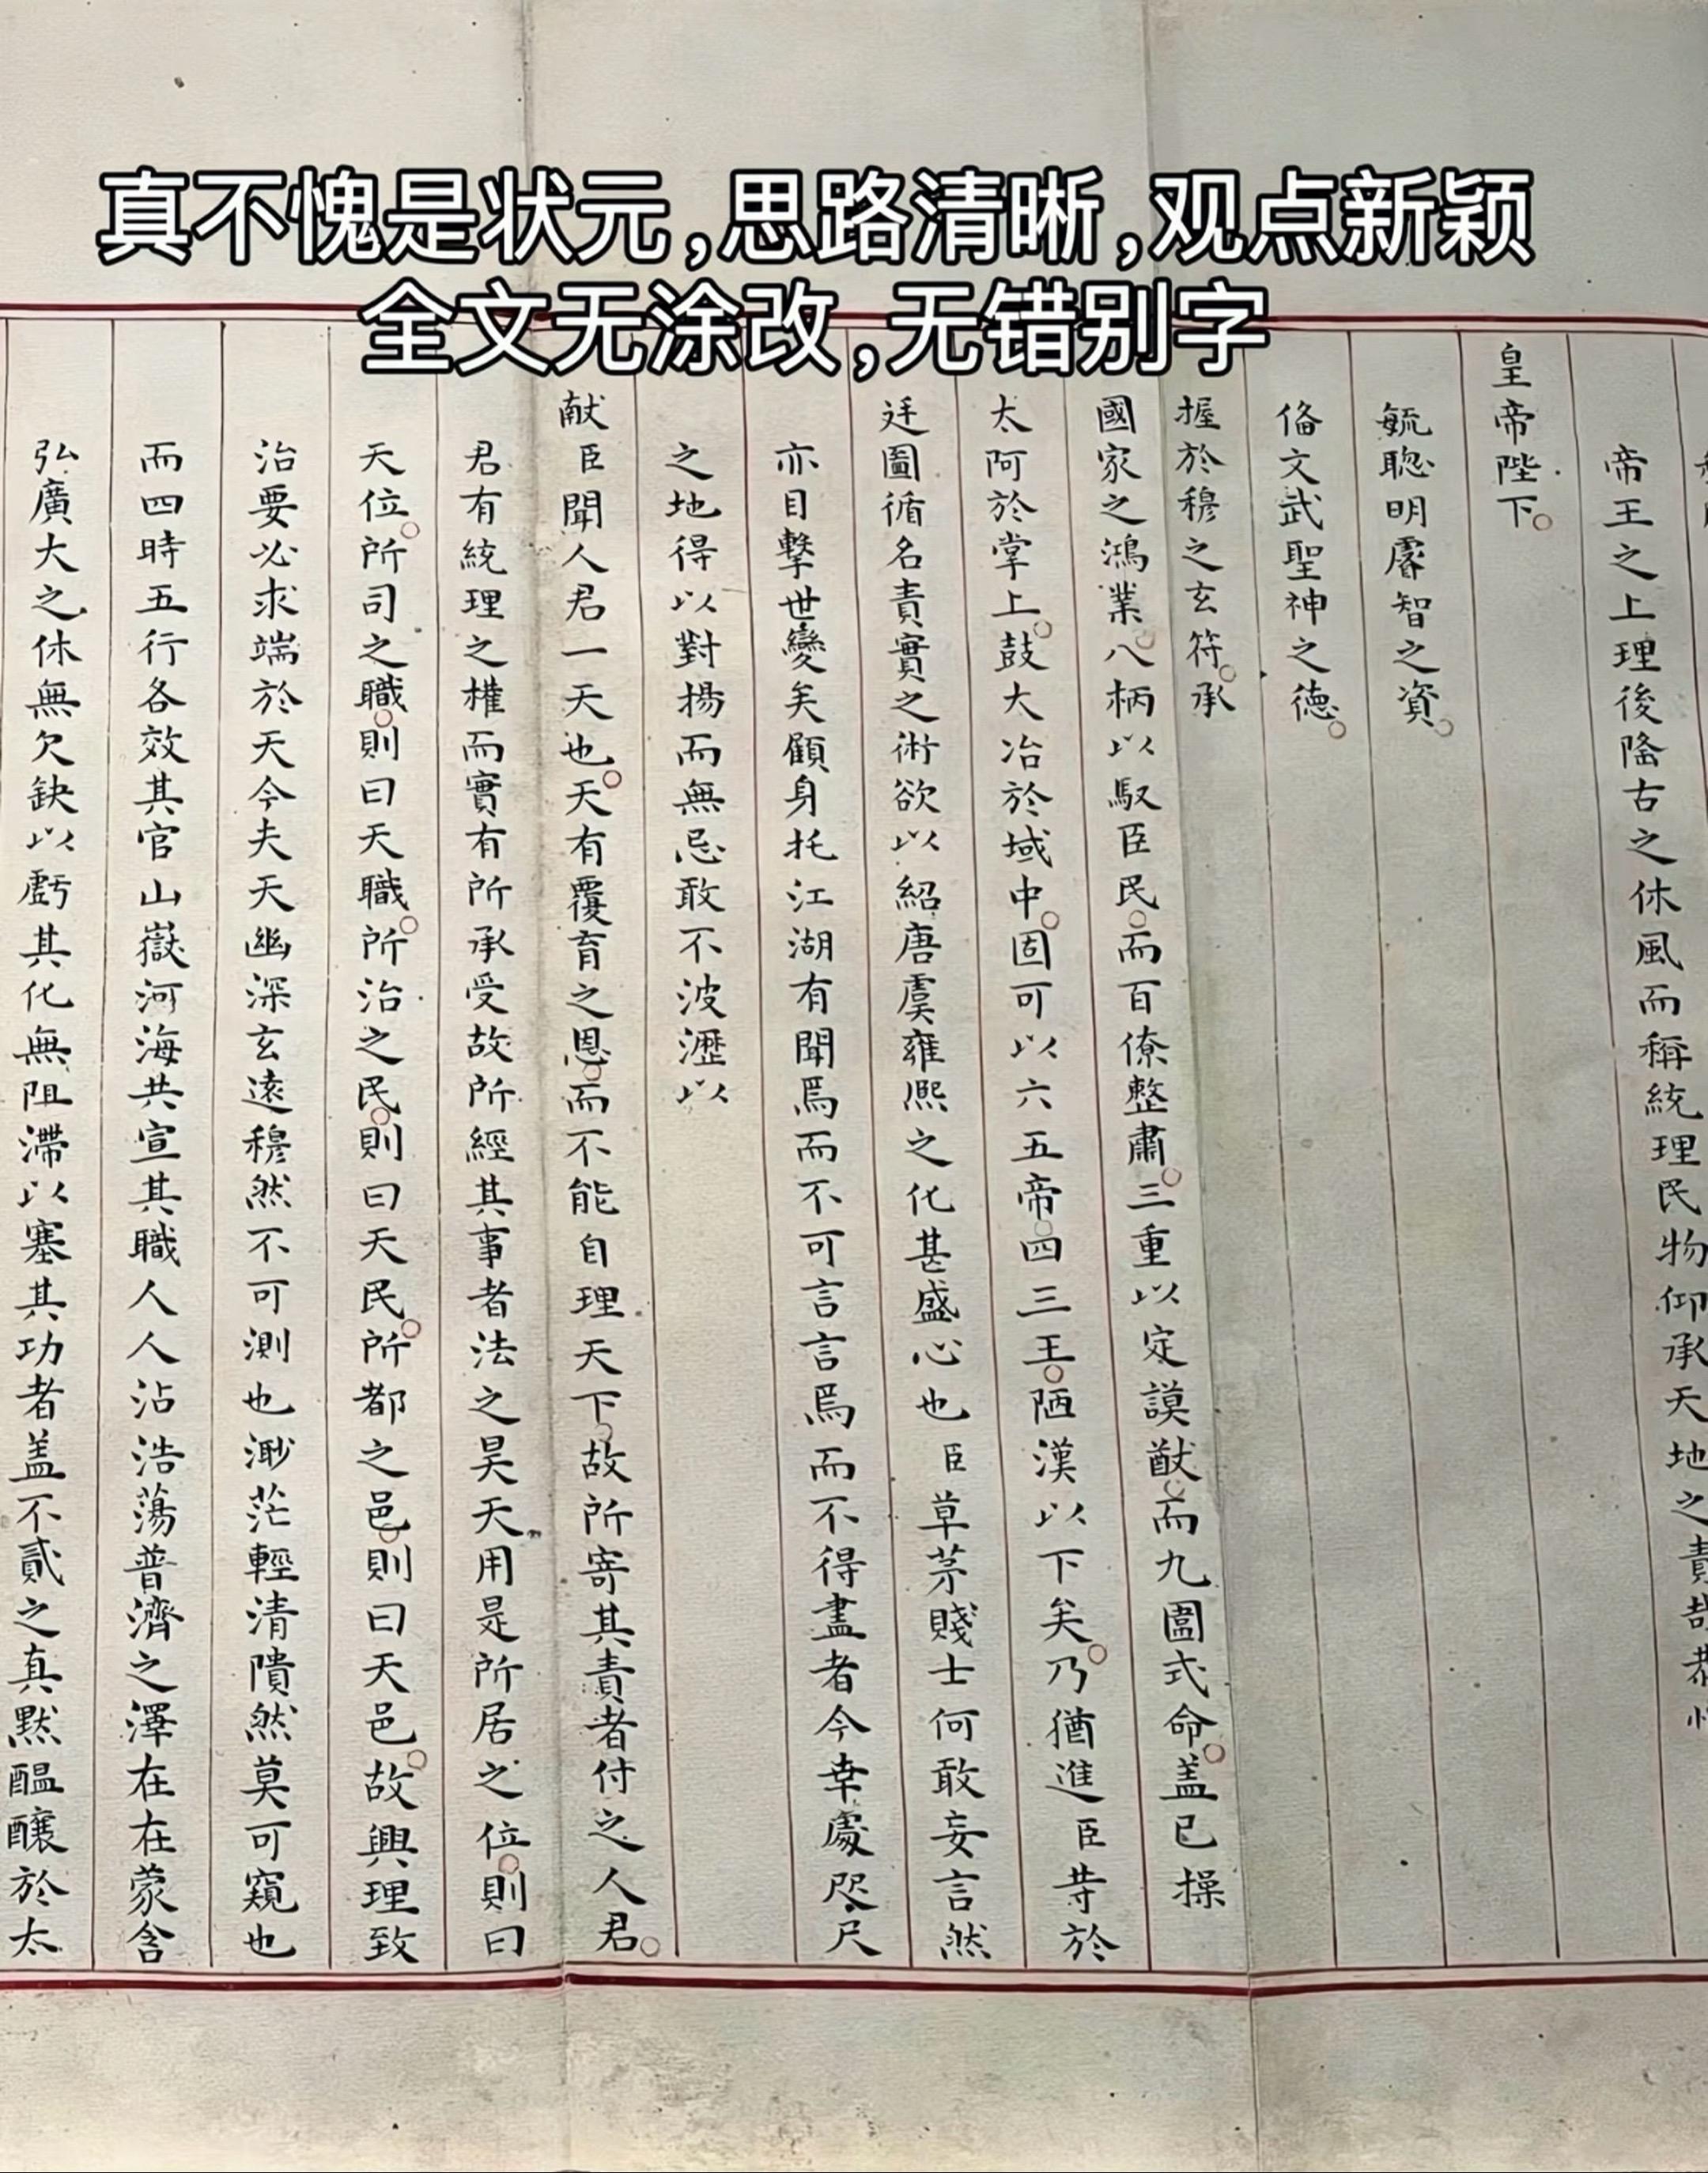 真不愧是状元,思路清晰,观点新颖
全文无涂改,无错别字
帝王之上理後隆古之休風而稱統理民物仰承天地之責哉恭惟
皇帝陛下
毓聰明睿智之資
俻文武聖神之德
握於穆之玄符承
國家之鴻業八柄以馭臣民而百僚整肅三重以定謨猷而九圍式命盖已操
太阿於掌上鼓大冶於域中固可以六五帝四三王陋漢以下矣乃猶進臣等於
廷圖循名責實之術欲以紹唐虞雍熙之化甚盛心也臣草茅賤士何敢妄言然
亦目擊世變矣顧身托江湖有聞焉而不可言言焉而不得盡者今幸處咫尺
之地得以對揚而無忌敢不波瀝以
献臣聞人君一天也天有覆育之恩而不能自理天下故所寄其責者付之人君
君有統理之權而實有所承受故所經其事者法之昊天用是所居之位則曰
天位所司之職則曰天職所治之民則曰天民所都之邑則曰天邑故興理致
治要必求端於天今夫天幽深玄遠穆然不可測也渺茫輕清隤然莫可窺也
而四時五行各效其官山嶽河海共宣其職人人沾浩蕩普濟之澤在在蒙含
弘廣大之休無欠缺以虧其化無阻滯以塞其功者盖不貳之真默醖釀於太